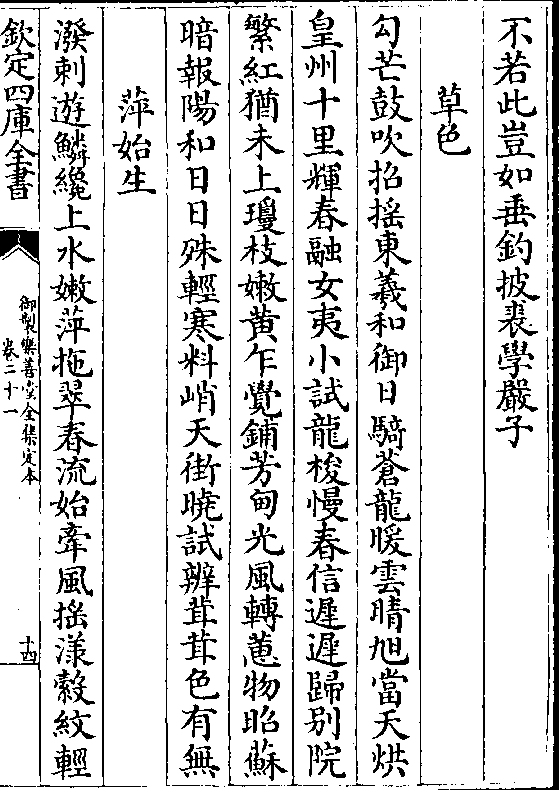 不若此豈如垂釣披裘學嚴子
草色
勾芒鼓吹招摇東羲和御日騎蒼龍暖雲晴旭當天烘
皇州十里輝春融女夷小試龍梭慢春信遲遲歸别院
繁紅猶未上瓊枝嫩黄乍覺鋪芳甸光風轉蕙物昭蘇
暗報陽和日日殊輕寒料峭天街曉試辨茸茸色有無
萍始生
潑剌遊鱗纔上水嫩萍拖翠春流始牽風摇漾縠紋輕
欽定四庫全書
御製樂善堂全集定本
卷二十一
十四